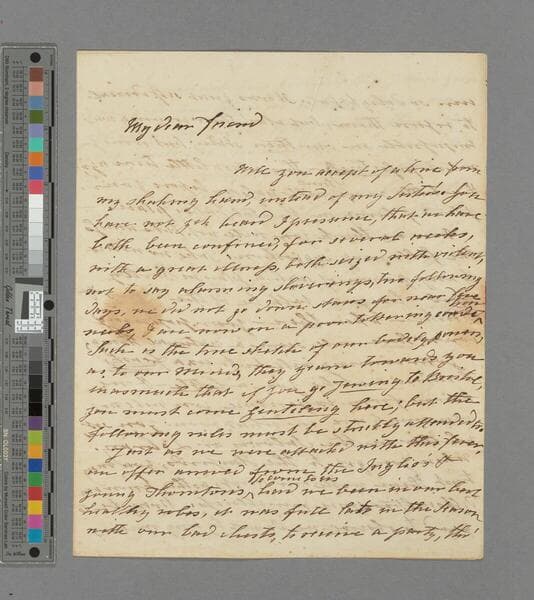 My dear friend
Will you accept of a line from
my shaking hand, instead of my Sisters you
have not yet heard I presume, that we have
both been confined, for several weeks,
with a great illness, both seized with violent,
not to say alarming shiverings, two following
days, we did not go down stairs for near three
weeks, & are now in a poor tottering condition
Such is the true sketch of our bodily powers,
as to our minds, they yearn towards you
inasmuch that if you go to
you must come here; but the
following rules must be strictly attended to.
Just as we were attacked with this fever,
an offer arrived from the &
young Thorntons to come to us, had we been in our best
healthy robes, it was full late in the season
with our bad chests, to receive a party, tho'